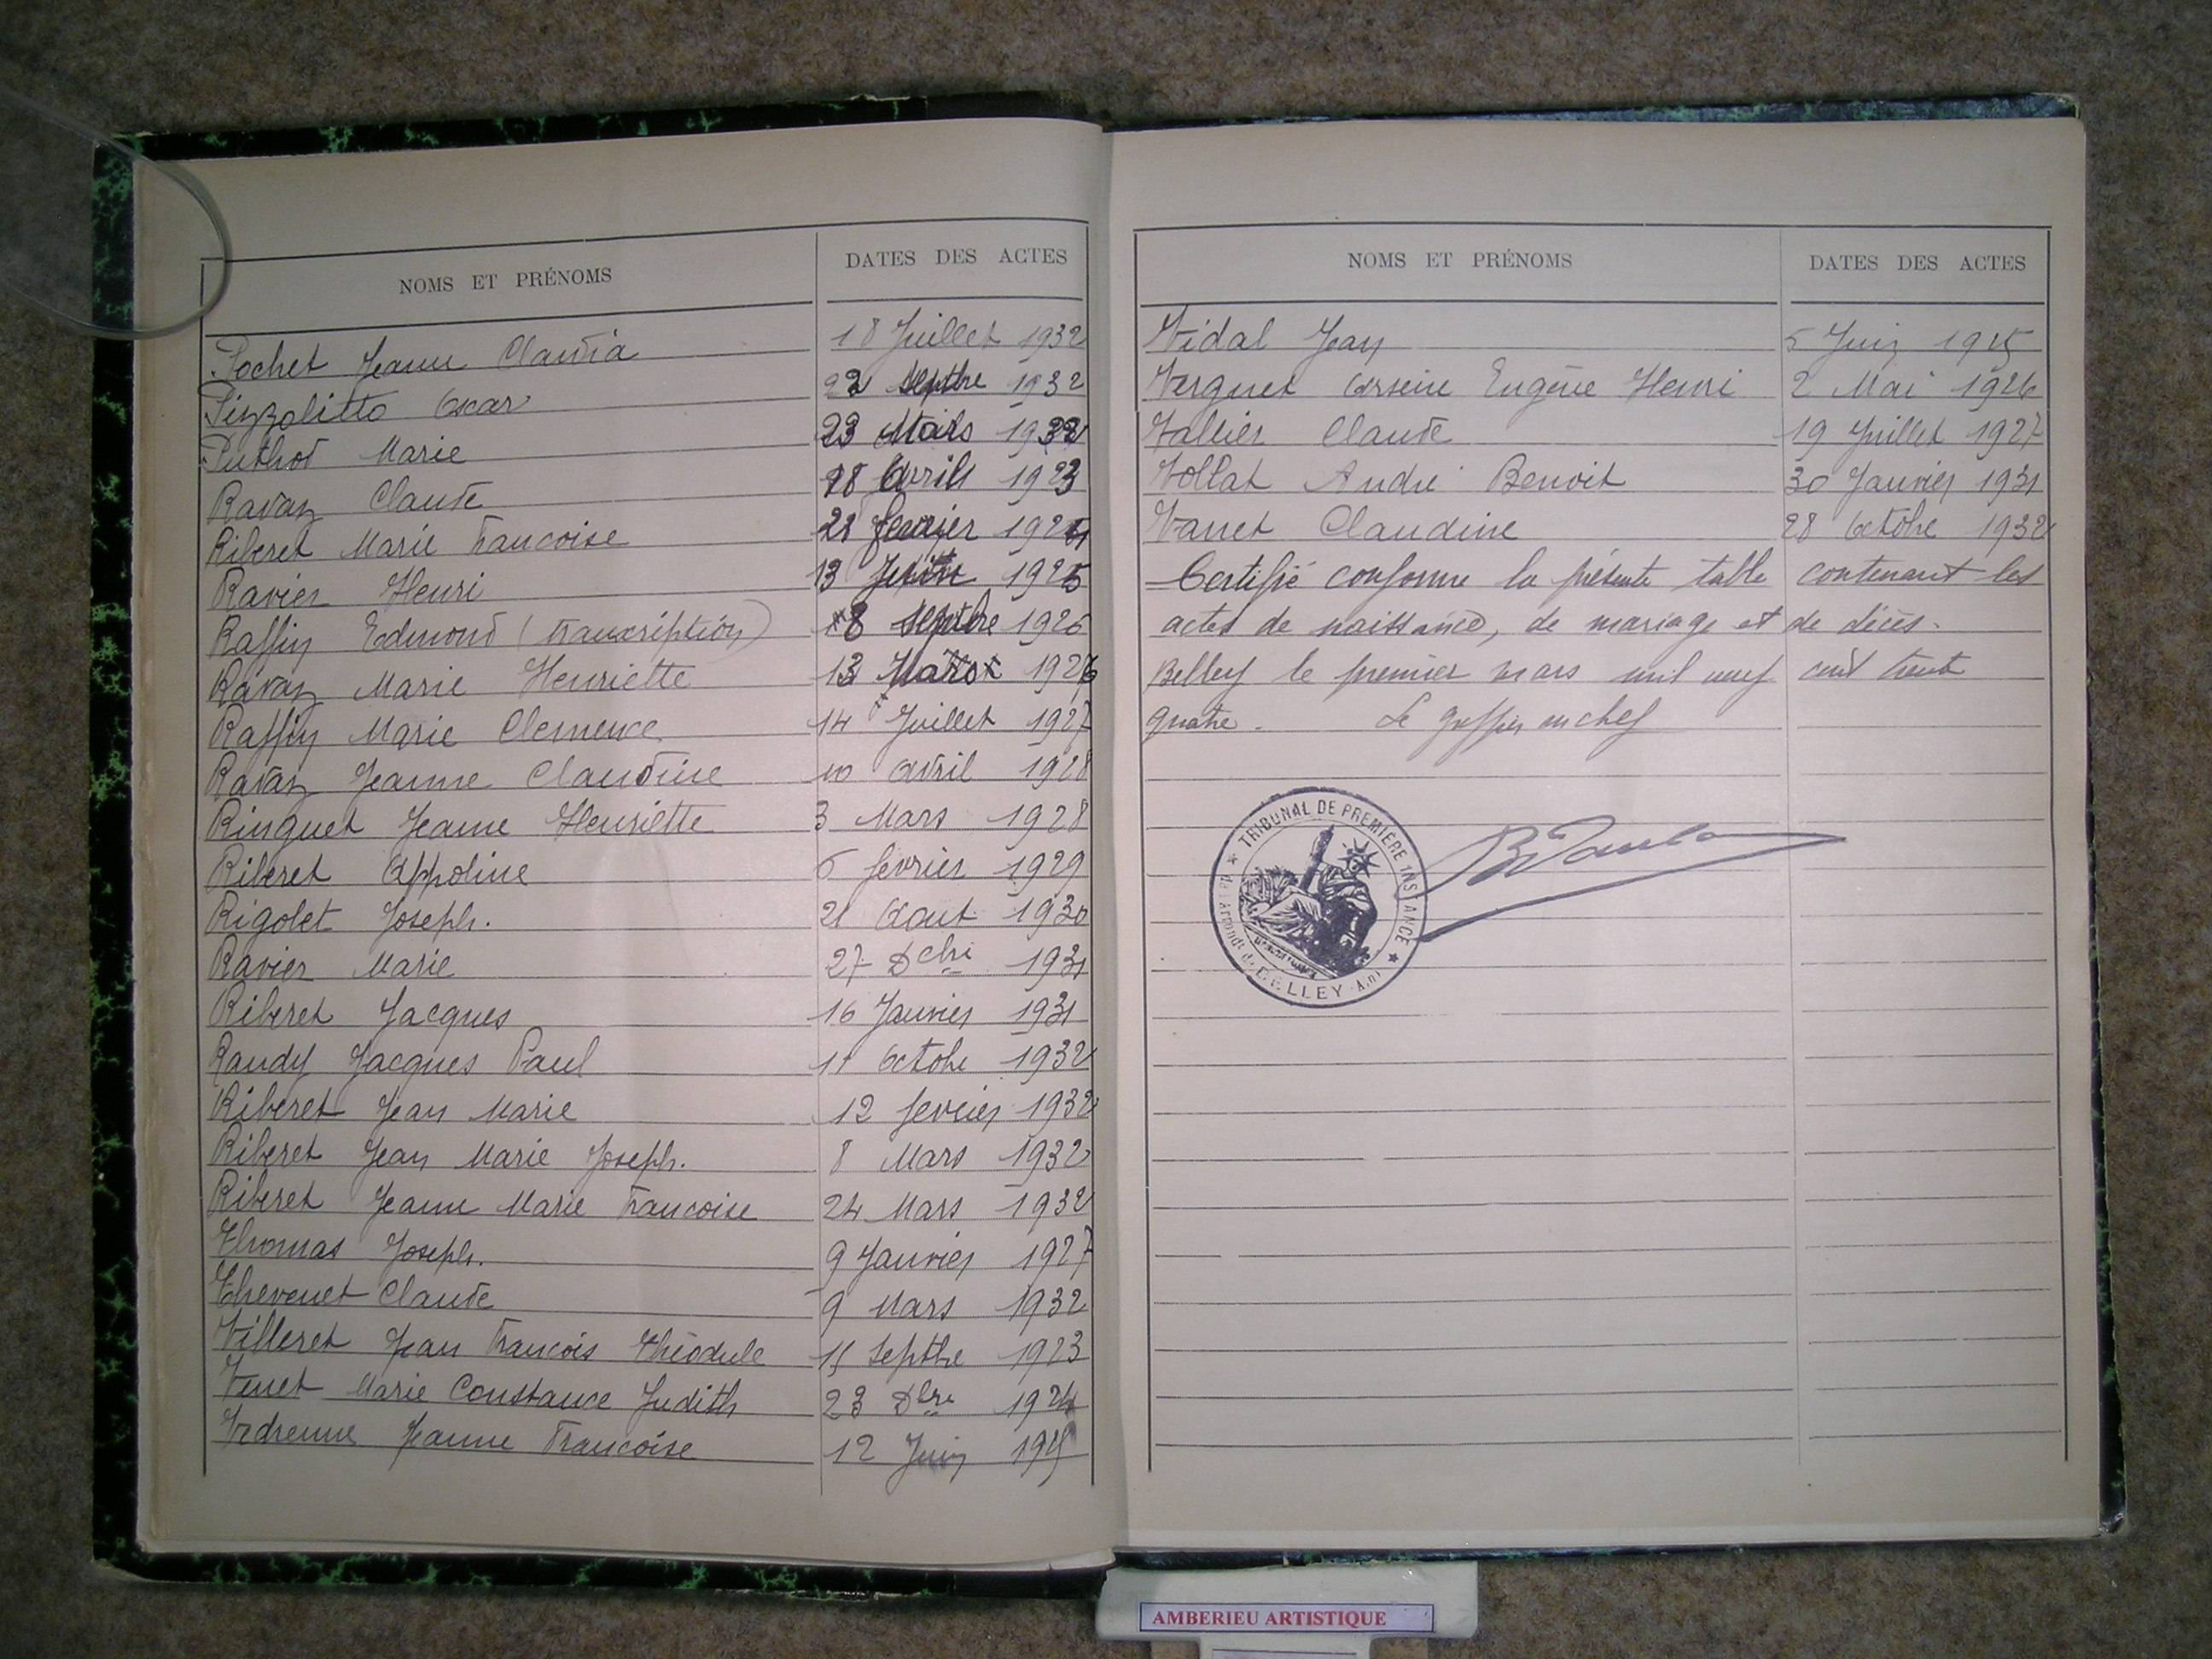 NOMS ET PRÉNOMS DATES DES ACTES
Pochet Jeanne Claudia 18 Juillet 1932
Pizzolitto Oscar 22 Septbre 1932
Puthod Marie 23 Mars 1932
Ravaz Claude 28 Avril 1923
Riberet Marie Francoise 21 fevrier 1924
Ravier Henri 13 1925
Raffin Edmond (transcription) 18 Septbre 1926
Ravaz Marie Henriette 13 Mars 1926
Raffin Marie Clemence 14 Juillet 1927
Ravaz Jeanne Claudine 10 avril 1928
Ringuet Jeanne Henriette 3 Mars 1928
Riberet Appoline 6 fevrier 1929
Rigolet Joseph. 21 Aout 1930
Ravier Marie 27 Dcbre 1931
Riberet Jacques 16 Janvier 1931
Raudy Jacques Paul 11 Octobre 1932
Riberet Jean Marie 12 fevrier 1932
Riberet Jean Marie Joseph. 8 Mars 1932
Riberet Jeanne Marie Francoise 24 Mars 1932
Thomas Joseph. 9 Janvier 1927
Thevenet Claude 9 Mars 1932
Villeret Jean Francois Théodule 15 Septbre 1923
Venet Marie Constance Judith 23 Dbre 1924
Vedrenne Jeanne Francoise 12 Juin
NOMS ET PRÉNOMS DATES DES ACTES
Vidal Jean 5 Juin 1925
Verguet Arsène Eugène Henri 2 Mai 1926
Vallier Claude 19 Juillet 1927
Vollat André Benoit 30 Janvier 1931
Vanet Claudine 28 Octobre 1932
Certifié conforme la présente table contenant les
actes de naissance, de mariage et de décès.
Belley le premier mars mil neuf cent trente
quatre. Le greffier en chef
TRIBUNAL DE PREMIERE INSTANCE
de l'Arrondt de BELLEY (Ain)
AMBERIEU ARTISTIQUE